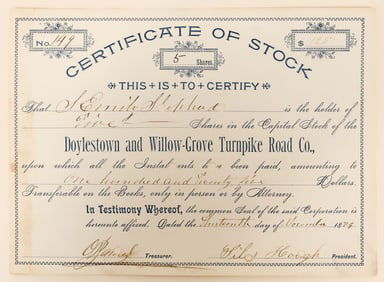 No. 149
CERTIFICATE OF STOCK
$
5 Shares.
THIS IS TO CERTIFY
That is the holder of
Five Shares in the Capital Stock of the
Doylestown and Willow-Grove Turnpike Road Co.,
upon which all the Instal ents to a been paid, amounting to
One hundred and Twenty five Dollars.
Transferable on the Books, only in person or by Attorney.
In Testimony Whereof, the common Seal of the said Corporation is
hereunto affixed. Dated the day of November 18
Treasurer. President.